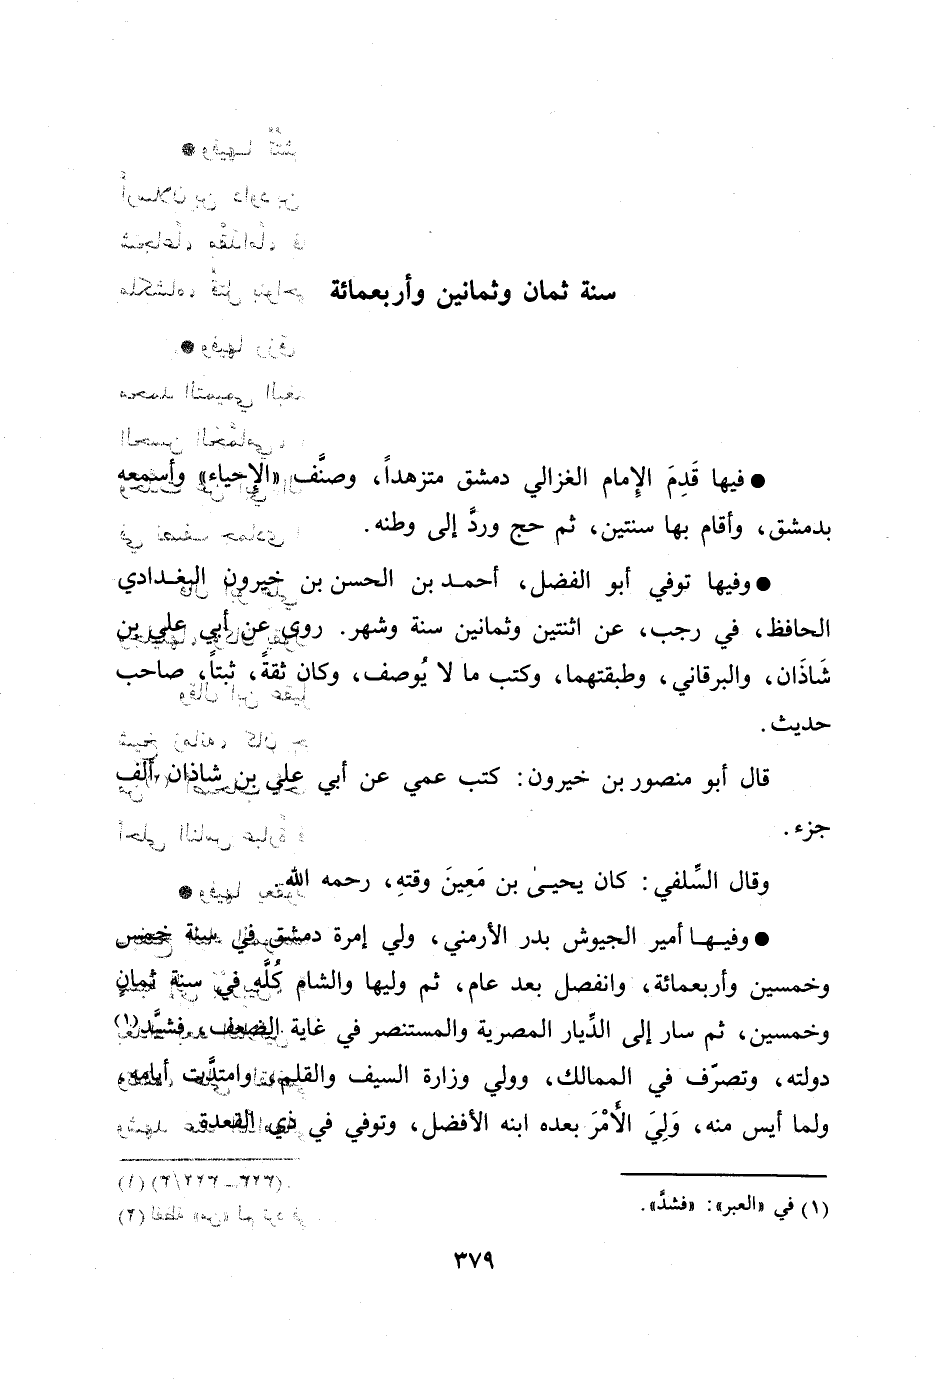 سنة ثمان وثمانين وأربعمائة
● فيها قَدِمَ الإمام الغزالي دمشق متزهداً، وصنَّف «الإحياء» وأسمعه
بدمشق، وأقام بها سنتين، ثم حج وردَّ إلى وطنه.
● وفيها توفي أبو الفضل، أحمد بن الحسن بن خيرون البغدادي
الحافظ، في رجب، عن اثنتين وثمانين سنة وشهر. روى عن أبي علي بن
شَاذَان، والبرقاني، وطبقتهما، وكتب ما لا يُوصف، وكان ثقةً، ثبتاً، صاحب
حديث.
قال أبو منصور بن خيرون: كتب عمي عن أبي علي بن شاذان ألف
جزء.
وقال السِّلفي: كان يحيىٰ بن مَعِينَ وقتهِ، رحمه الله.
● وفيها أمير الجيوش بدر الأرمني، ولي إمرة دمشق في سنة خمس
وخمسين وأربعمائة، وانفصل بعد عام، ثم وليها والشام كُلَّهِ في سنة ثمانٍ
وخمسين، ثم سار إلى الدِّيار المصرية والمستنصر في غاية الضعف، فشيَّد(١)
دولته، وتصرّف في الممالك، وولي وزارة السيف والقلم، وامتدَّت أيامه،
ولما أيس منه، وَلِيَ الأَمْرَ بعده ابنه الأفضل، وتوفي في ذي القعدة
(١) في «العبر»: «فشدَّ».
٣٧٩